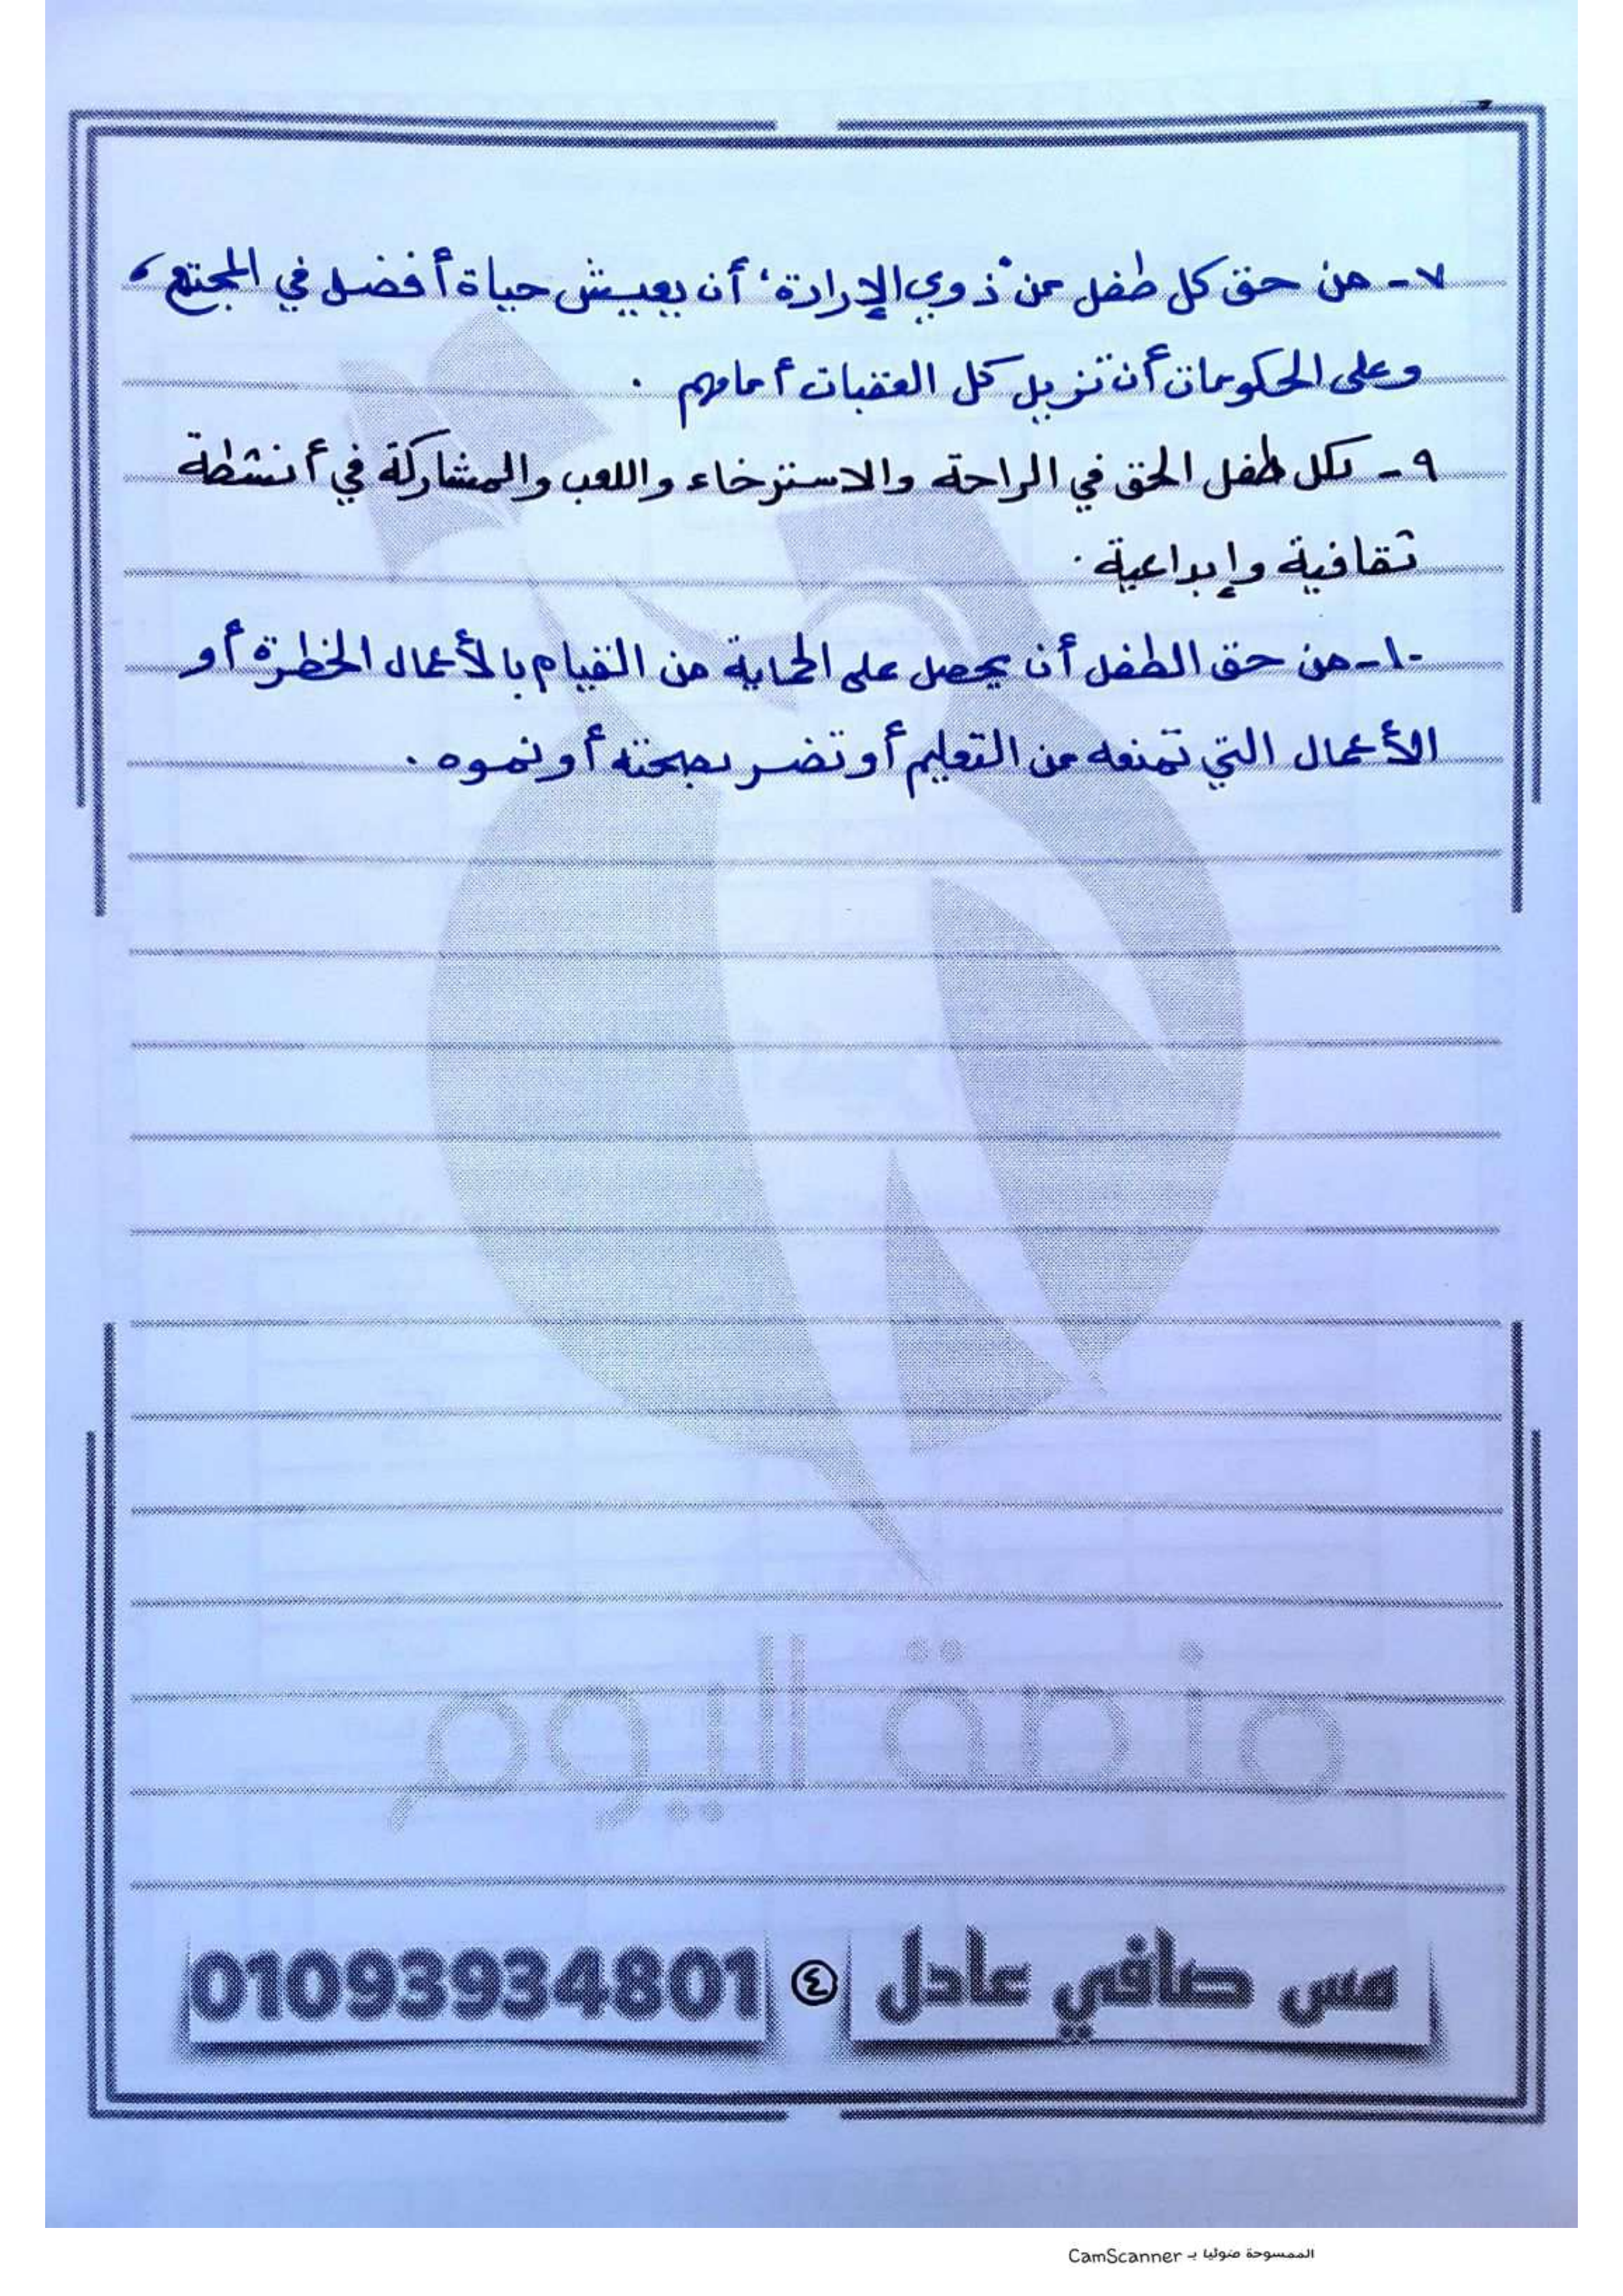 ٧- من حق كل طفل من "ذوي الإرادة" أن يعيش حياة أفضل في المجتمع،
وعلى الحكومات أن تزيل كل العقبات أمامهم.
٩- لكل طفل الحق في الراحة والاسترخاء واللعب والمشاركة في أنشطة
ثقافية وإبداعية.
١٠- من حق الطفل أن يحصل على الحماية من القيام بالأعمال الخطرة أو
الأعمال التي تمنعه من التعليم أو تضر بصحته أو نموه.
منصة اليوم
مس صافي عادل ٤ 01093934801
الممسوحة ضوئيا بـ CamScanner